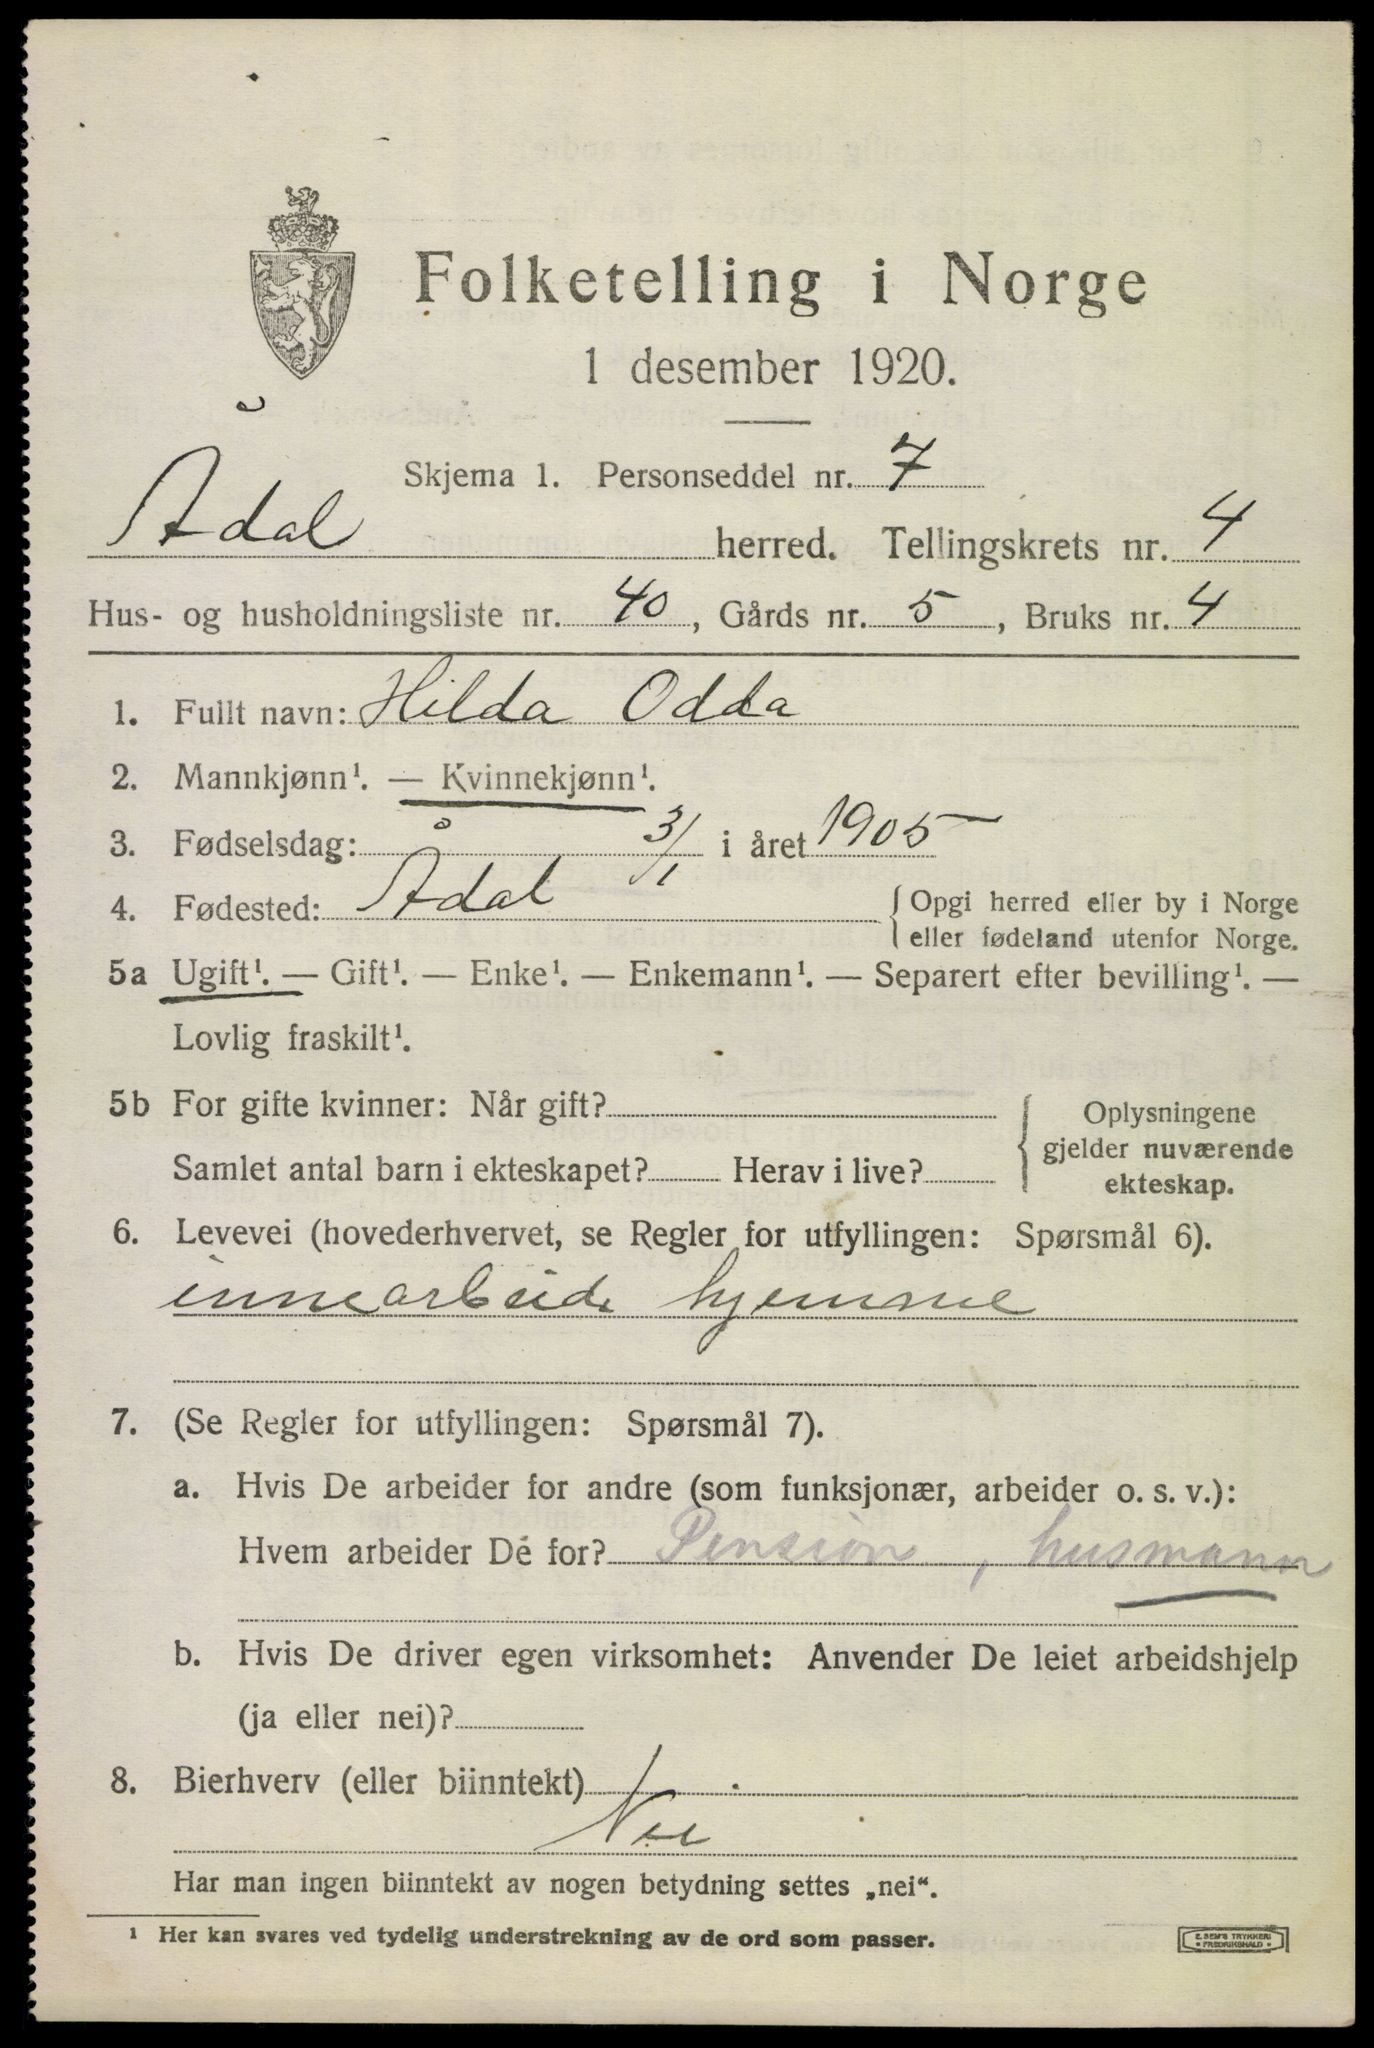 Folketelling i Norge
1 desember 1920.
Skjema 1. Personseddel nr. 7
Ådal herred. Tellingskrets nr. 4
Hus- og husholdningsliste nr. 40, Gårds nr. 5, Bruks nr. 4
1. Fullt navn: Hilda Odda
2. Mannkjønn¹. — Kvinnekjønn¹.
3. Fødselsdag: 3/1 i året 1905
4. Fødested: Ådal { Opgi herred eller by i Norge
eller fødeland utenfor Norge.
5a Ugift¹. — Gift¹. — Enke¹. — Enkemann¹. — Separert efter bevilling¹. —
Lovlig fraskilt¹.
5b For gifte kvinner: Når gift?
Samlet antal barn i ekteskapet? Herav i live?
Oplysningene
gjelder nuværende
ekteskap.
6. Levevei (hovederhvervet, se Regler for utfyllingen: Spørsmål 6).
innearbeide hjemme
7. (Se Regler for utfyllingen: Spørsmål 7).
a. Hvis De arbeider for andre (som funksjonær, arbeider o. s. v.):
Hvem arbeider De for? Pension, husmann
b. Hvis De driver egen virksomhet: Anvender De leiet arbeidshjelp
(ja eller nei)?
8. Bierhverv (eller biinntekt)
Nei
Har man ingen biinntekt av nogen betydning settes „nei“.
¹ Her kan svares ved tydelig understrekning av de ord som passer.
E. SEM'S TRYKKERI
• FREDRIKSHALD •